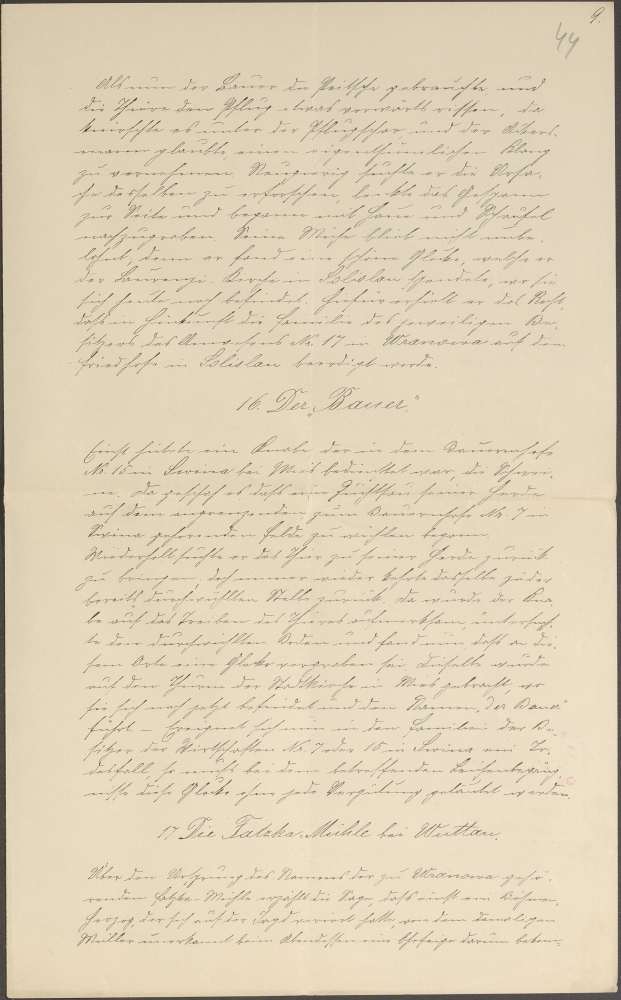 9.
44
Als nun der Bauer die Peitsche gebrauchte und
die Thiere den Pflug etwas vorwärts rissen, da
knirschte es unter der Pflugschar und der Ackers-
mann glaubte einen eigenthümlichen Klang
zu vernehmen. Neugierig suchte er die Ursa-
che desselben zu erforschen, lenkte das Gespann
zur Seite und begann mit Haue und Schaufel
nachzugraben. Seine Mühe blieb nicht unbe-
lohnt, denn er fand eine schöne Glocke, welche er
der Laurenzi-Kirche in Solislau spendete, wo sie
sich heute noch befindet. Hiefür erhielt er das Recht,
daß in Hinkunft die Familie des jeweiligen Be-
sitzers des Anwesens No. 17 in Wranowa auf dem
Friedhofe in Solislau beerdigt werde.
16. Der „Bauer."
Einst hütete ein Knabe der in dem Bauernhofe
No. 15 in Swina bei Mies bedienstet war, die Schwei-
ne. Da geschah es daß eine Zuchtsau seiner Herde
auf dem angrenzenden zum Bauernhofe No. 7 in
Swina gehörenden Felde zu wühlen begann.
Wiederholt suchte er das Thier zu seiner Herde zurück
zu bringen, doch immer wieder kehrte dasselbe zu der
bereits durchwühlten Stelle zurück. Da wurde der Kna-
be auf das Treiben des Thieres aufmerksam, untersuch-
te den durchwühlten Boden und fand nun, daß an die-
sem Orte eine Glocke vergraben sei. Dieselbe wurde
auf den Thurm der Stadtkirche in Mies gebracht, wo
sie sich noch jetzt befindet und den Namen „der Bauer"
führt. – Ereignet sich nun in den Familien der Be-
sitzer der Wirtschaften No. 7 oder 15 in Swina ein To-
desfall, so muß bei dem betreffenden Leichenbegäng-
nisse diese Glocke ohne jede Vergütung geläutet werden.
17. Die Tatzka-Mühle bei Wuttau.
Über den Ursprung des Namens der zu Wranowa gehö-
renden Tatzka-Mühle erzählt die Sage, daß einst ein Böhmen-
herzog, der sich auf der Jagd verirrt hatte, von dem damaligen
Müller unerkannt beim Abendessen eine Ohrfeige darum bekom-